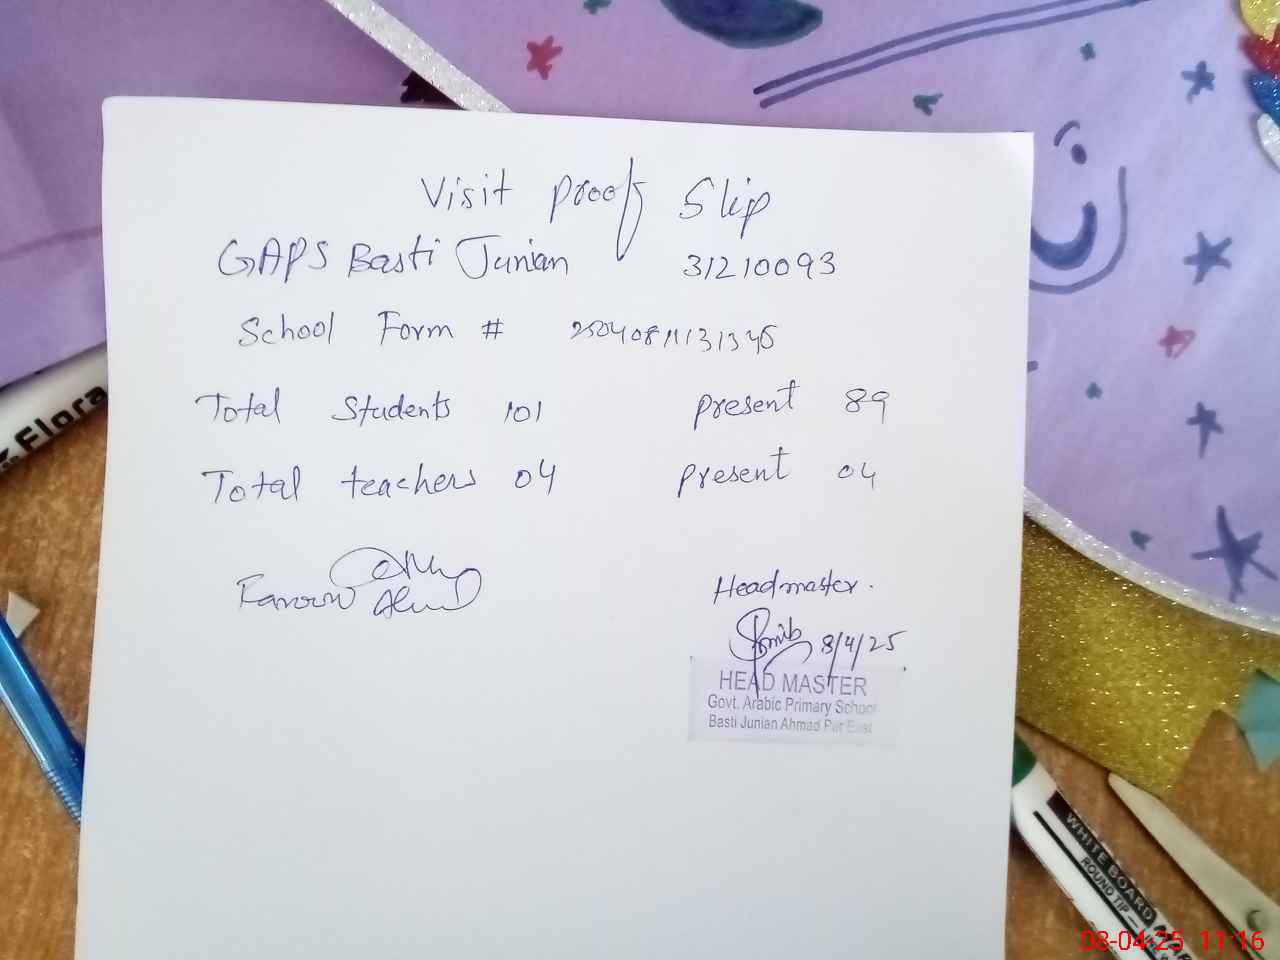 Visit Proof Slip
GAPS Basti Junian 31210093
School Form # 25040811131345
Total Students 101 present 89
Total teachers 04 present 04
Headmaster.
8/4/25
HEAD MASTER
Govt. Arabic Primary School
Basti Junian Ahmad Pur East
Flora
WHITE BOARD
ROUND TIP
08-04-25 11:16